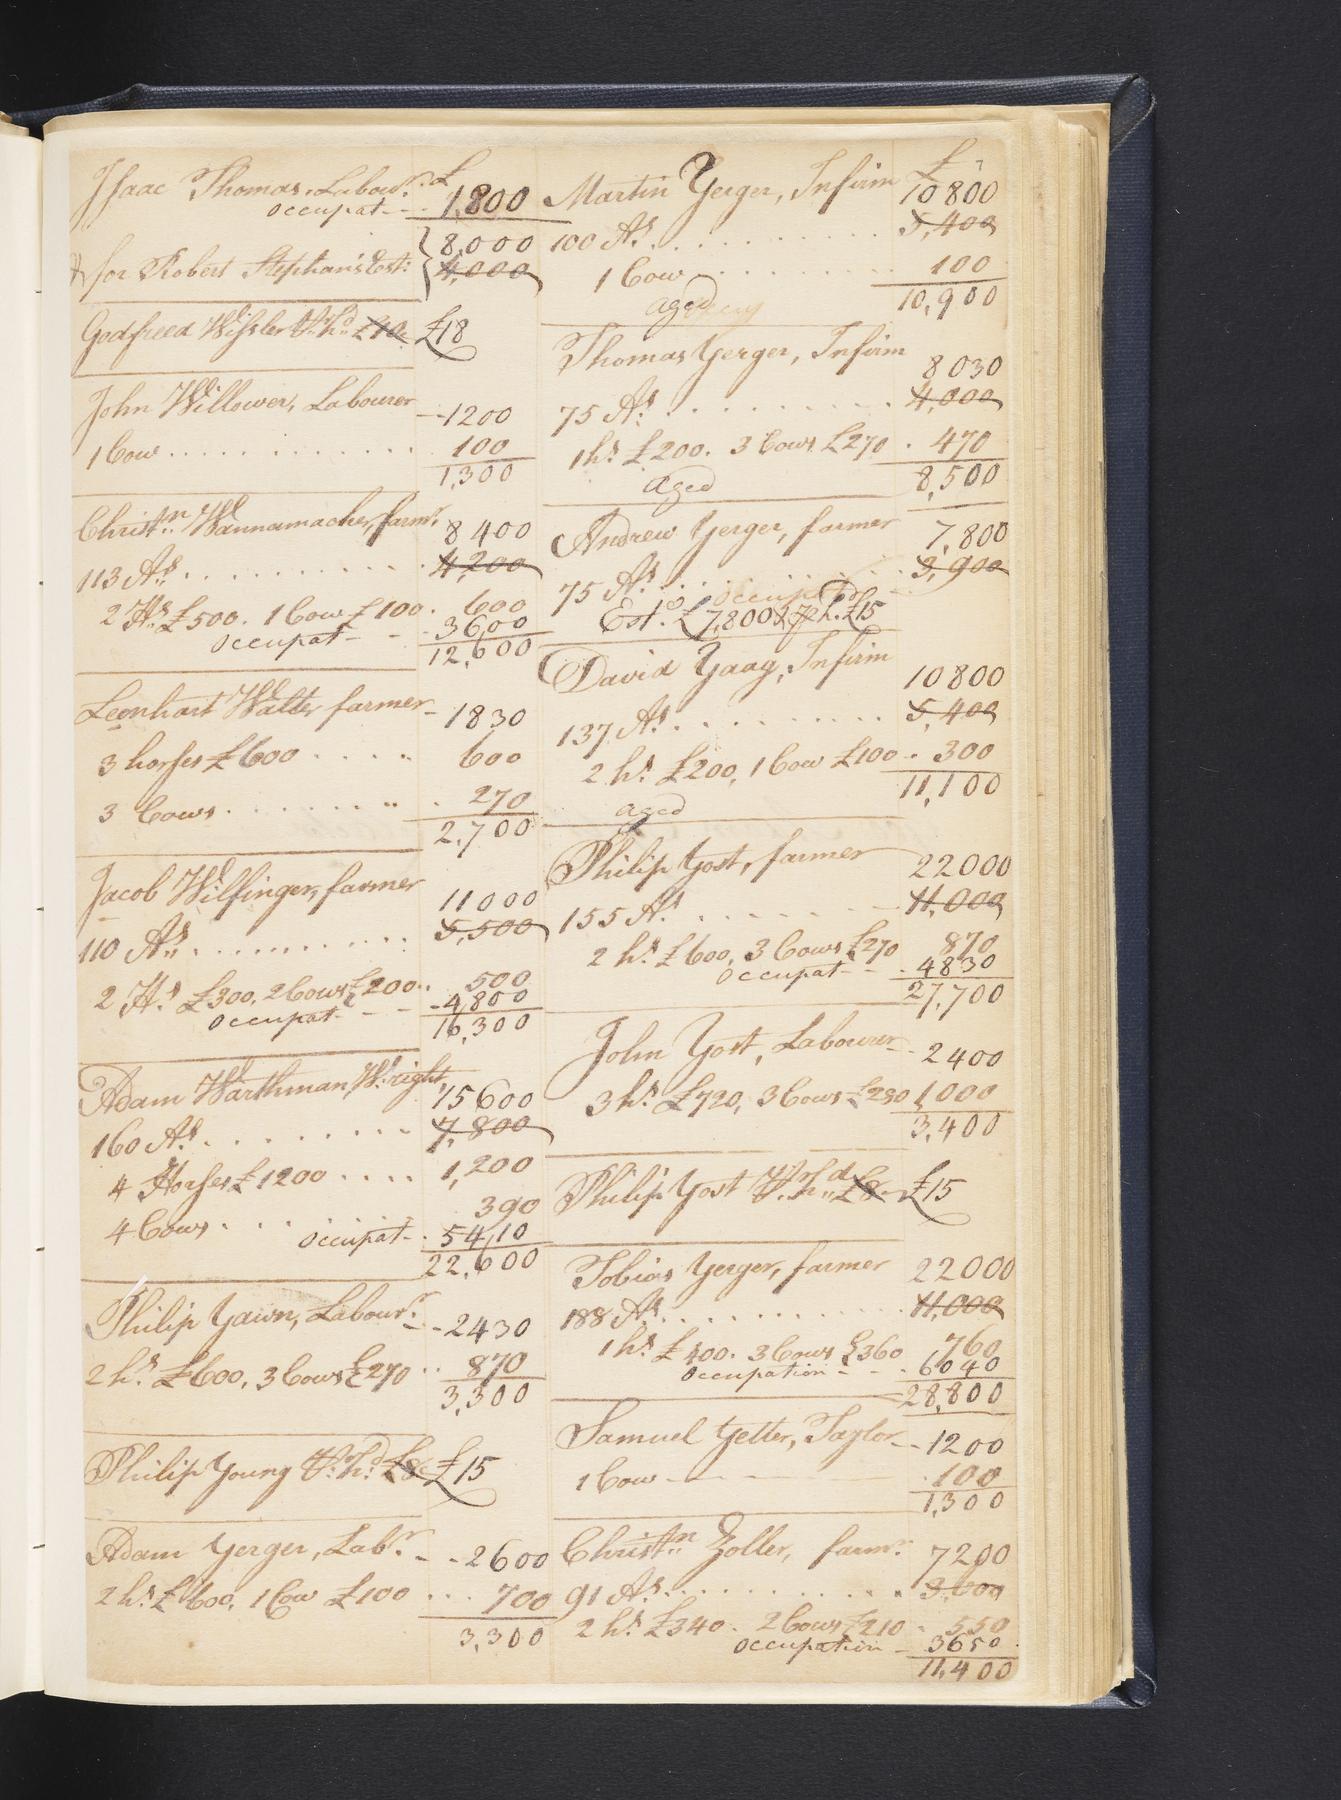 Isaac Thomas. Labour.r £
occupat-- 1,800
for Robert Stephan's Est: { 8,000
4,000
Godfreed Wissler V. h.d £10 £18
John Willower, Labourer -- 1200
1 Cow . . . . . . . . . . . 100
1,300
Christ.n Wannamacher, farm.r 8400
113 A.s . . . . . . . . . . 4,200
2 H.s £500. 1 Cow £100 . 600
occupat- - - 3600
12,600
Leonhart Walter farmer - 1830
3 horses £600 . . . . . 600
3 Cows . . . . . . . . . 270
2,700
Jacob Wilfinger, farmer 11000
110 A.s . . . . . . . . . 5,500
2 H.s £300. 2 Cows £200 . . 500
occupat- - - 4,800
16,300
Adam Warthman, W.right, 15600
160 A.s . . . . . . . . . 7,800
4 Horses £1200 . . . . 1,200
4 Cows . . . . . . 390
occupat- . 5410
22,600
Philip Yawn, Labour.r -- 2430
2 h.s £600, 3 Cows £270 . . 870
3,300
Philip Young V. h.d £8 £15
Adam Yerger, Lab.r - - 2600
2 h.s £600, 1 Cow £100 . . . 700
3,300
£
Martin Yerger, Infirm 10800
100 A.s . . . . . . . . . . 5,400
1 Cow - . . . . . . . . . 100
aged 10,900
Thomas Yerger, Infirm 8030
75 A.s . . . . . . . . . . 4,000
1 h.s £200. 3 Cows £270 . 470
aged 8,500
Andrew Yerger, farmer 7,800
75 A.s . . . . . . . . . . 3,900
occupat
Est.o £7,800 & p h. £15
David Yaag, Infirm 10800
137 A.s . . . . . . . . . 5,400
2 h.s £200, 1 Cow £100 . . 300
aged 11,100
Philip Yost, farmer 22000
155 A.s . . . . . . . - 11,000
2 h.s £600, 3 Cows £270 870
occupat- - . 4830
27,700
John Yost, Labourer - - 2400
3 h.s £720, 3 Cows £280 1,000
3,400
Philip Yost V. h.d £8 - £15
Tobias Yerger, farmer 22000
188 A.s . . . . . . . . . . 11,000
1 h.s £400. 3 Cows £360 760
occupation - - . 6040
28,800
Samuel Yetter, Taylor -- 1200
1 Cow - - - - . 100
1,300
Christ.n Zoller, farm.r 7200
91 A.s . . . . . . . . . . 3,600
2 h.s £340. 2 Cows £210 . 550
occupation - 3650
11,400